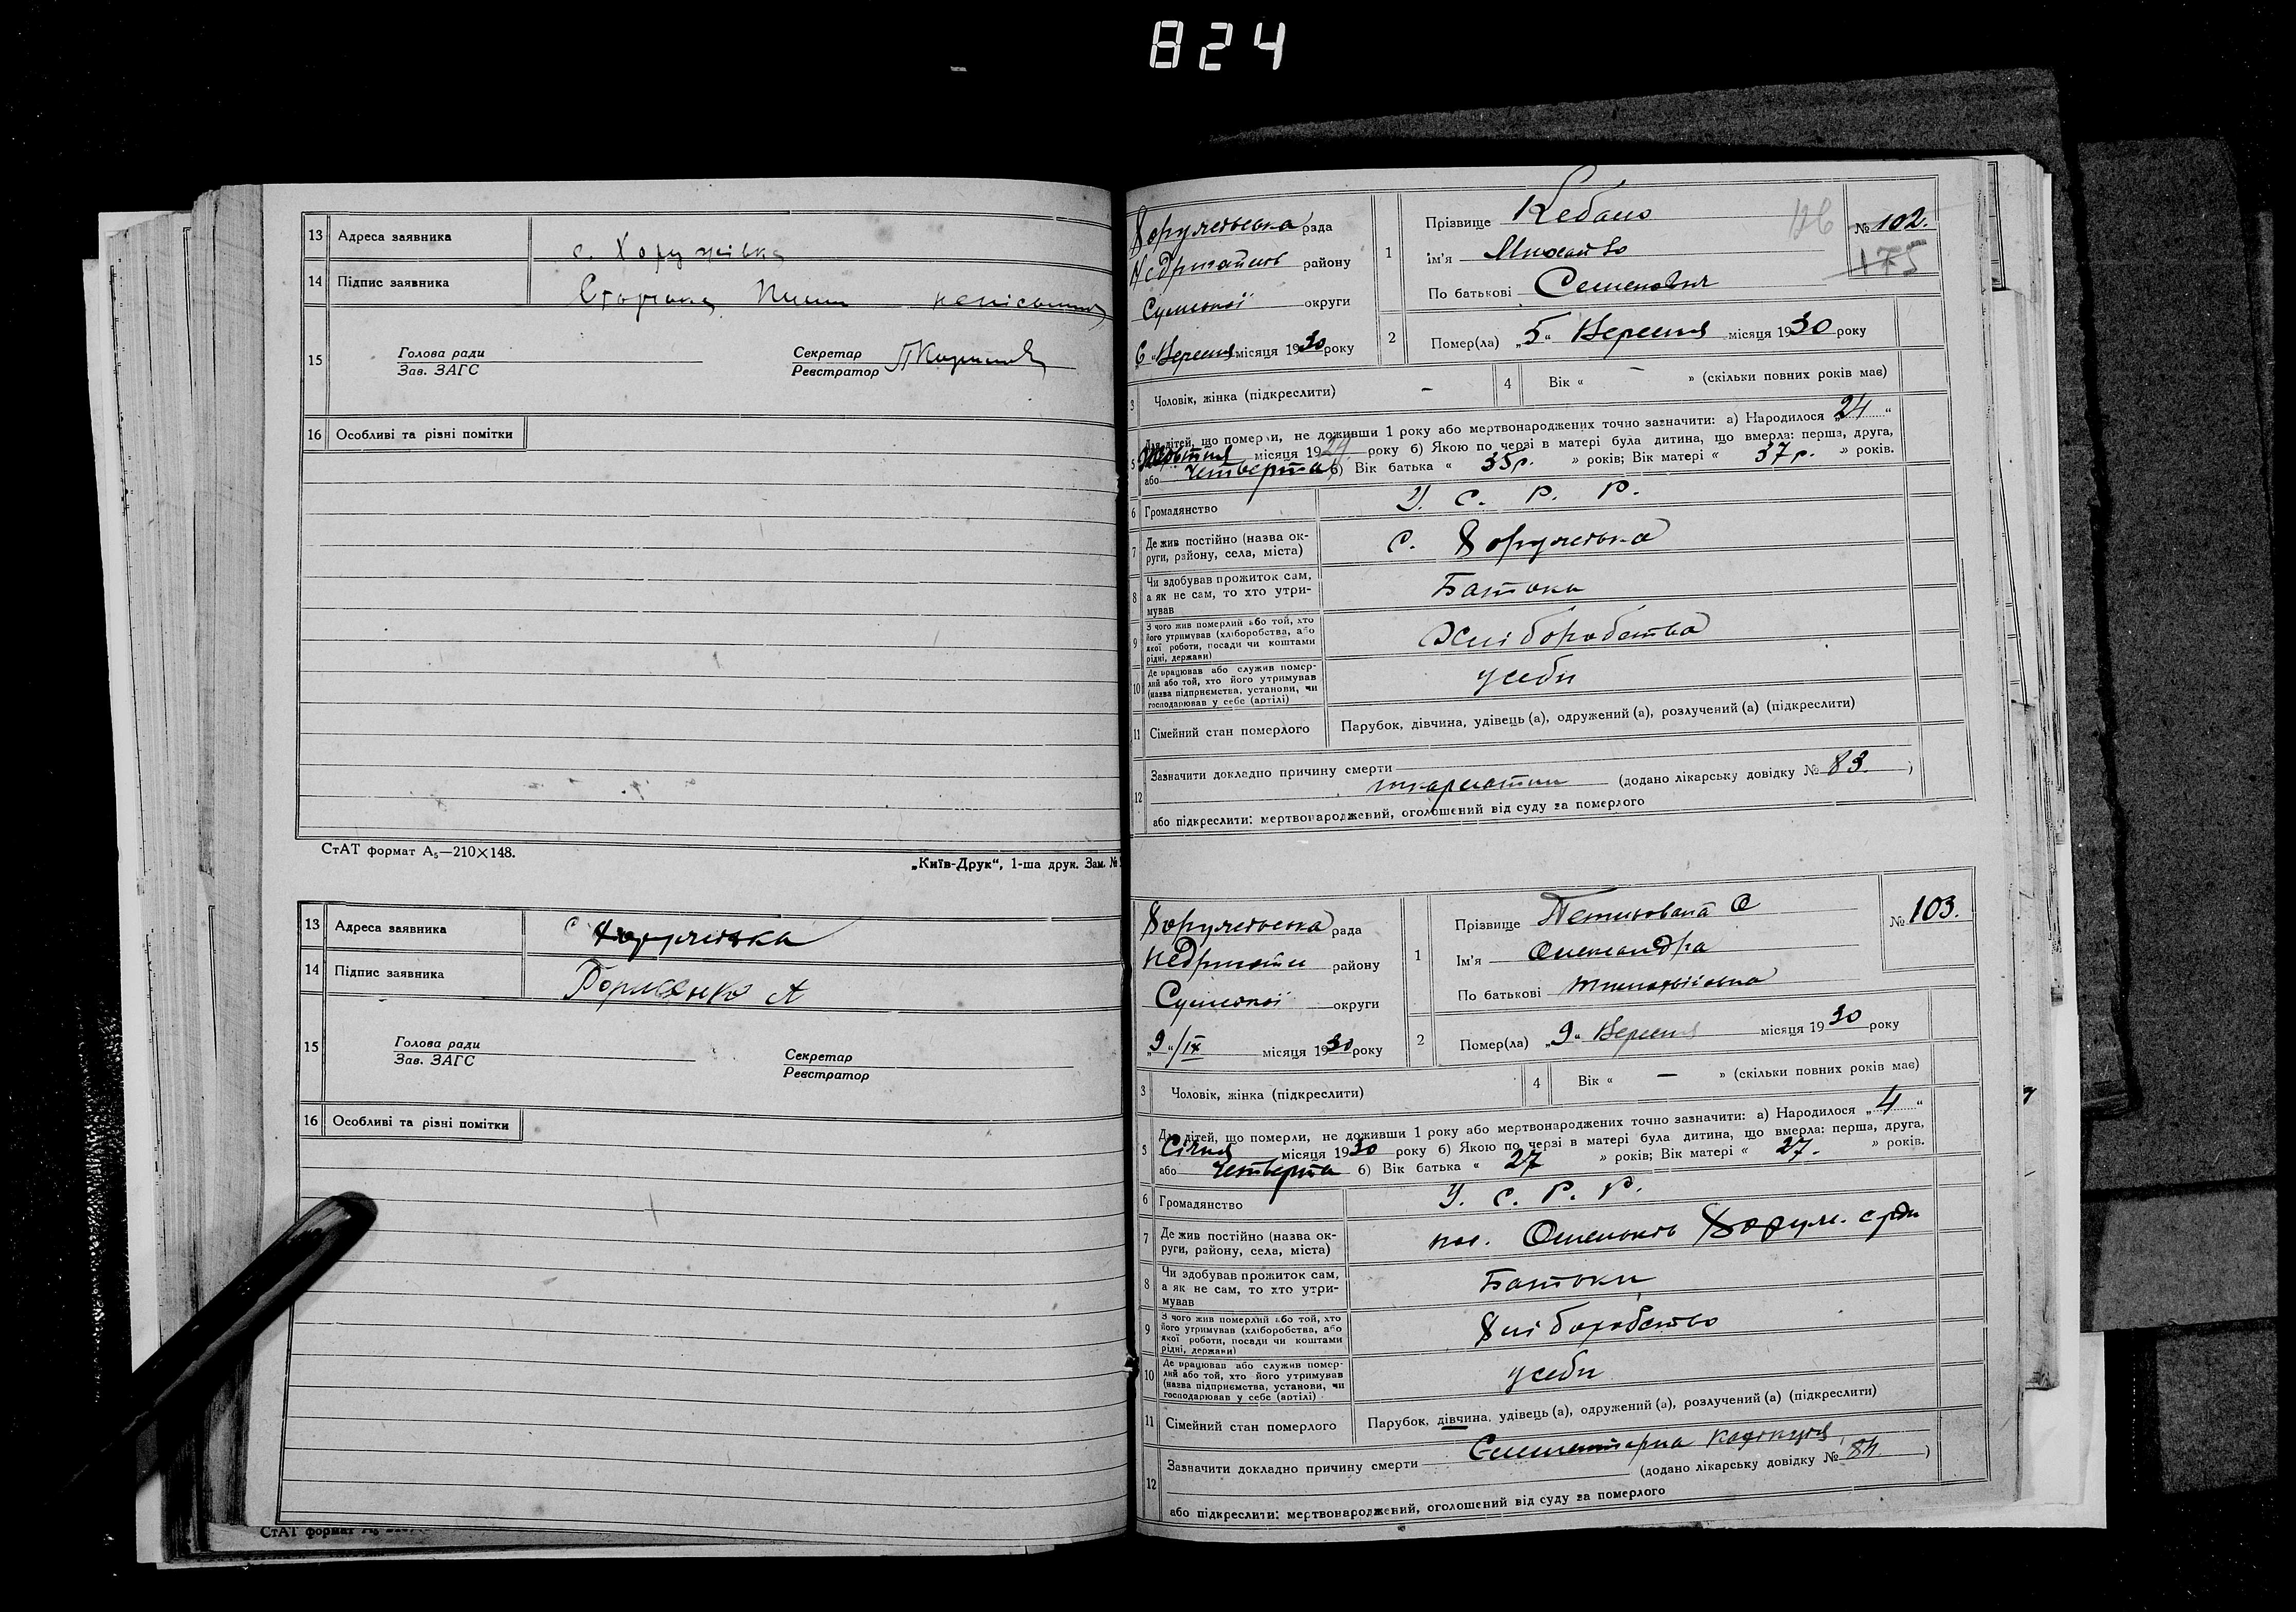 824
13 Адреса заявника с. Хоружівка
14 Підпис заявника
15 Голова ради
Зав. ЗАГС
Секретар
Реєстратор
16 Особливі та різні помітки
СтАТ формат А₅—210×148.
„Київ-Друк“, 1-ша друк. Зам. №
13 Адреса заявника с Хоружівка
14 Підпис заявника
15 Голова ради
Зав. ЗАГС
Секретар
Реєстратор
16 Особливі та різні помітки
СтАТ формат
Хоружівська рада
району
Сумської округи
„6“ Вересня місяця 1930 року
1 Прізвище
Ім'я Михайло
По батькові Семенович
№ 102.
175
2 Помер(ла) „5“ Вересня місяця 1930 року
3 Чоловік, жінка (підкреслити) –
4 Вік « – » (скільки повних років має)
5 Для дітей, що померли, не доживши 1 року або мертвонароджених точно зазначити: а) Народилося „24“
Жовтня місяця 1929 року б) Якою по черзі в матері була дитина, що вмерла: перша, друга,
або четверта б) Вік батька « 35р. » років; Вік матері « 37р. » років.
6 Громадянство У. С. Р. Р.
7 Де жив постійно (назва округи, району, села, міста) с. Хоружівка
8 Чи здобував прожиток сам,
а як не сам, то хто утримував
Батьки
9 З чого жив померлий або той, хто
його утримував (хліборобства, або
якої роботи, посади чи коштами
рідні, держави)
Хліборобства
10 Де працював або служив померлий або той, хто його утримував
(назва підприємства, установи, чи
господарював у себе (артілі)
у себи
11 Сімейний стан померлого Парубок, дівчина, удівець(а), одружений(а), розлучений(а) (підкреслити)
12 Зазначити докладно причину смерти
шкарлатин (додано лікарську довідку № 83.)
або підкреслити: мертвонароджений, оголошений від суду за померлого
Хоружівська рада
району
Сумської округи
„9“/IX місяця 1930 року
1 Прізвище
Ім'я Олександра
По батькові
№ 103.
2 Помер(ла) „9“ Вересня місяця 1930 року
3 Чоловік, жінка (підкреслити)
4 Вік « — » (скільки повних років має)
5 Для дітей, що померли, не доживши 1 року або мертвонароджених точно зазначити: а) Народилося „4“
Січня місяця 1930 року б) Якою по черзі в матері була дитина, що вмерла: перша, друга,
або четверта б) Вік батька « 27 » років; Вік матері « 27. » років.
6 Громадянство У. С. Р. Р.
7 Де жив постійно (назва округи, району, села, міста)
8 Чи здобував прожиток сам,
а як не сам, то хто утримував
Батьки
9 З чого жив померлий або той, хто
його утримував (хліборобства, або
якої роботи, посади чи коштами
рідні, держави)
Хліборобство
10 Де працював або служив померлий або той, хто його утримував
(назва підприємства, установи, чи
господарював у себе (артілі)
у себи
11 Сімейний стан померлого Парубок, дівчина, удівець(а), одружений(а), розлучений(а) (підкреслити)
12 Зазначити докладно причину смерти
(додано лікарську довідку № 84.)
або підкреслити: мертвонароджений, оголошений від суду за померлого